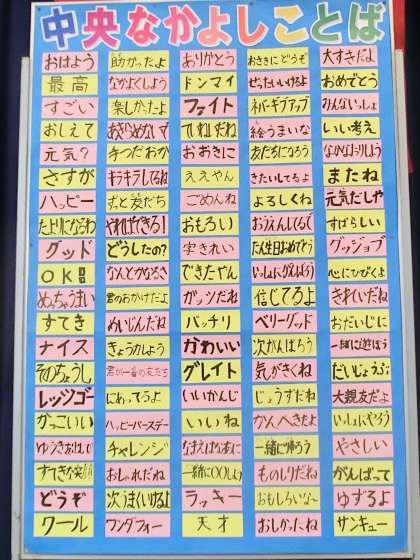 中央なかよしことば
おはよう 助かったよ ありがとう おさきにどうぞ 大すきだよ
最高 なかよくしよう ドンマイ ぜったいいけるよ おめでとう
すごい 楽しかったよ ファイト ネバーギブアップ みんないっしょ
おしえて あきらめないで ていねいだね 絵うまいな いい考え
元気? 手つだおか おおきに 友だちになろう
さすが キラキラしてるね ええやん きたいしてるよ またね
ハッピー ずっと友だち ごめんね よろしくね 元気だしや
たよりになるわ やればできる! おもろい おうえんしてるで すばらしい
グッド どうしたの? 字きれい たん生日おめでとう グッジョブ
OK なんとかなるさ できたやん いっしょにがんばろう 心にひびくよ
めっちゃうまい 君のおかげだよ ガッツだね 信じてるよ きれいだね
すてき めいじんだね バッチリ ベリーグッド おだいじに
ナイス きょう力しよう かわいい 次がんばろう 一緒に遊ぼう
そのちょうし 君が一番の友だち グレイト 気がきくね だいじょうぶ
レッツゴー にあってるよ いいかんじ じょうずだね 大親友だよ
かっこいい ハッピーバースデー いいね かんぺきだよ いっしょにやろう
ゆうきあるね チャレンジ 一緒に帰ろう やさしい
すてきな笑顔 おしゃれだね 一緒に〇〇しよう ものしりだね がんばって
どうぞ 次うまくいけるよ ラッキー おもしろいな~ ゆずるよ
クール ワンダフォー 天才 おしかったね サンキュー